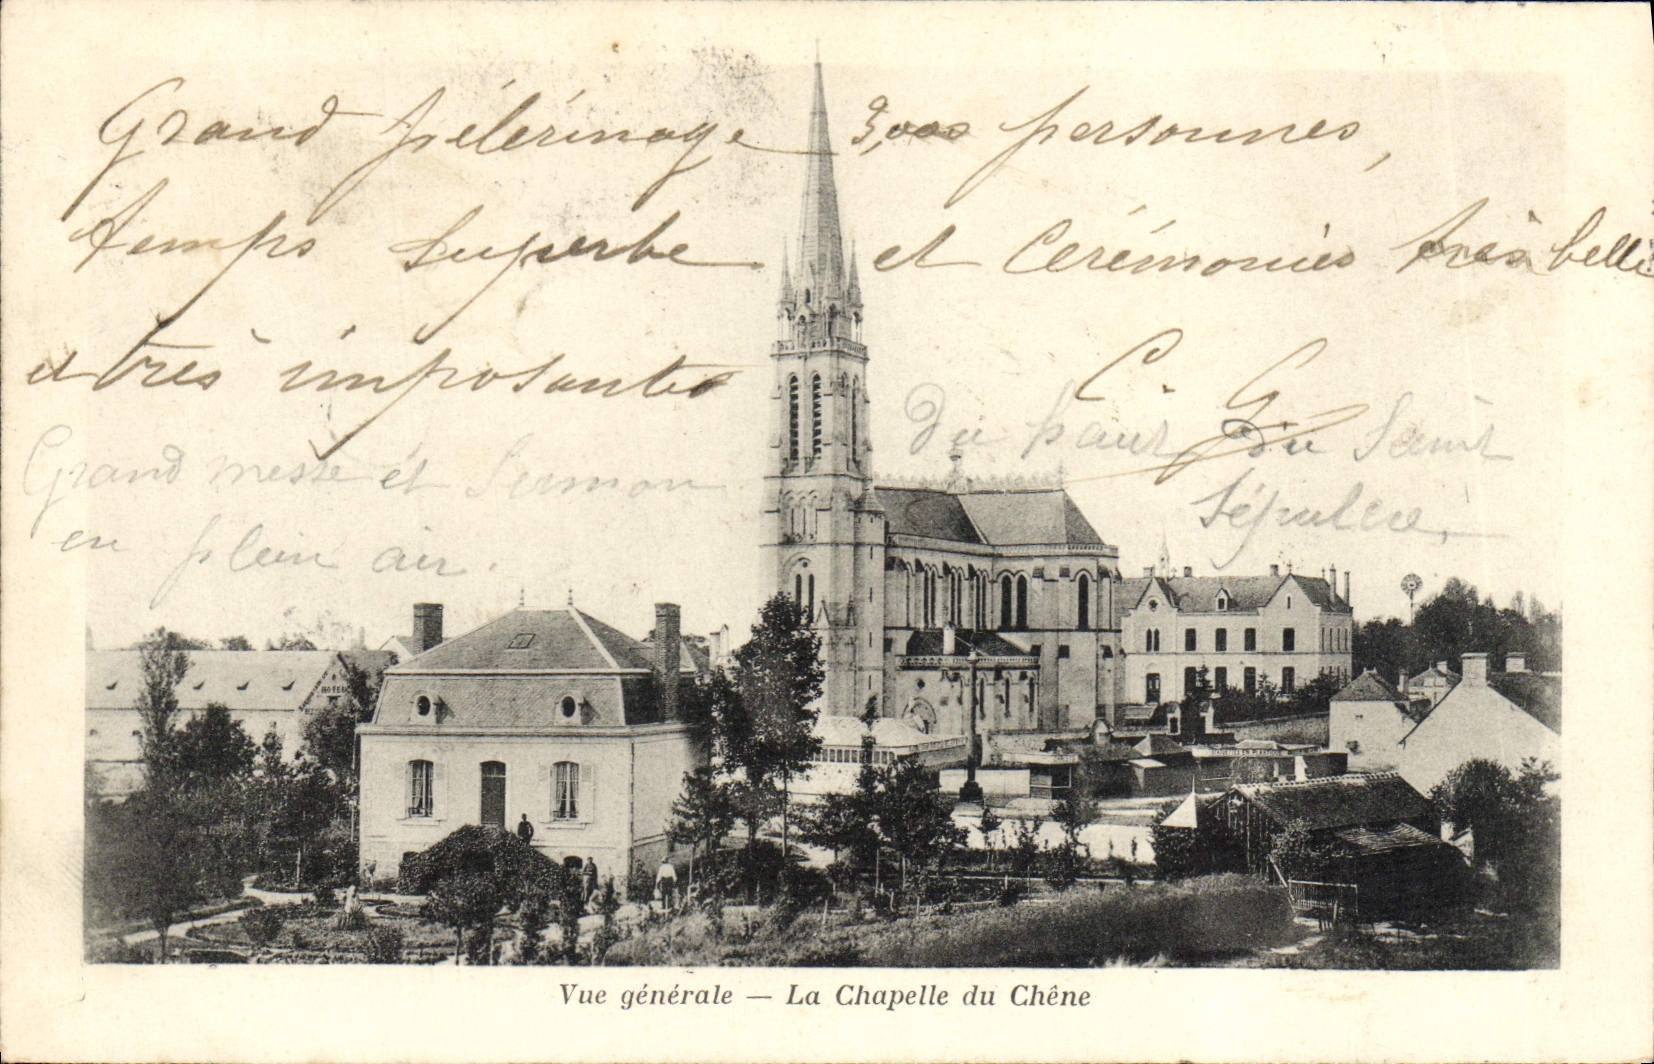 Grand pélérinage 3,000 personnes,
temps Superbe et Cerémonies très belles
et très imposantes
C. G.
Grand messe et Sermon
en plein air.
Du haut du Saint
Sépulcre,
HOTEL
Vue générale — La Chapelle du Chêne